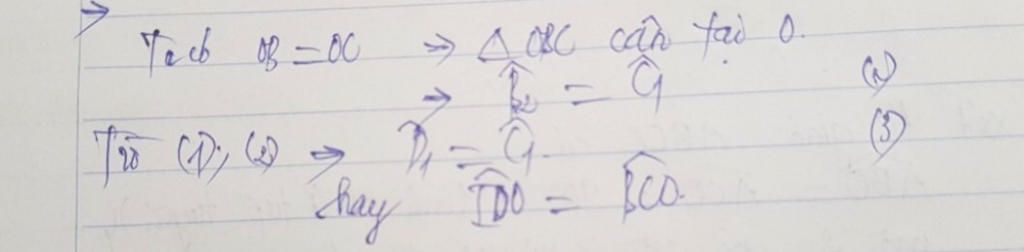 →
Ta có OB = OC → △ OBC cân tại O.
→ B̂₂ = Ĉ₁ (2)
Từ (1), (2) → D̂₁ = Ĉ₁. (3)
hay IDO = BCO.